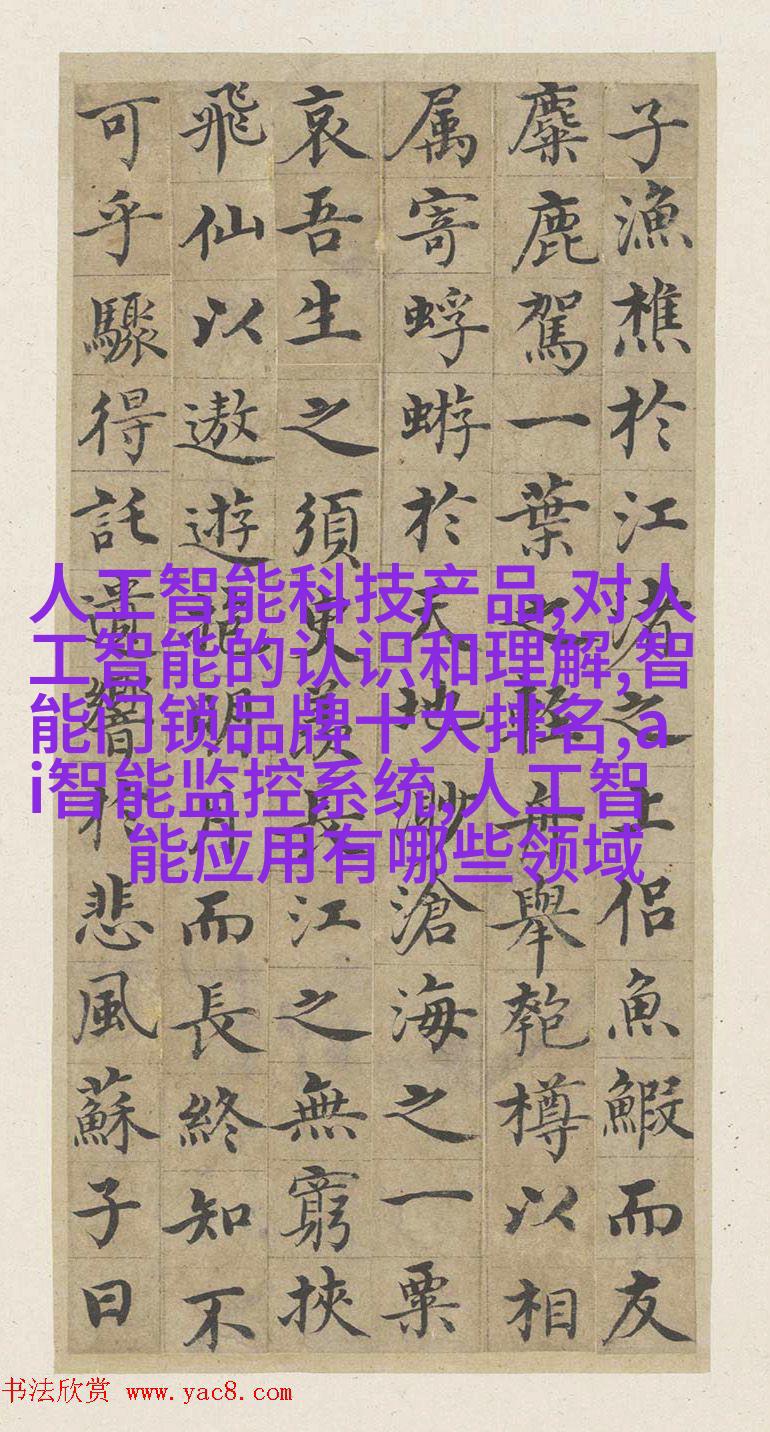 子漁樵於江渚之上侶魚鰕而友
麋鹿駕一葉之輕舟舉匏樽以相
属寄蜉蝣於天地渺滄海之一粟
哀吾生之須臾羨長江之無窮挾
飛仙以遨遊抱明月而長終知不
可乎驟得託遺響於悲風蘇子曰
人工智能科技产品,对人
工智能的认识和理解,智
能门锁品牌十大排名,a
i智能监控系统,人工智
能应用有哪些领域
书法欣赏 www.yac8.com